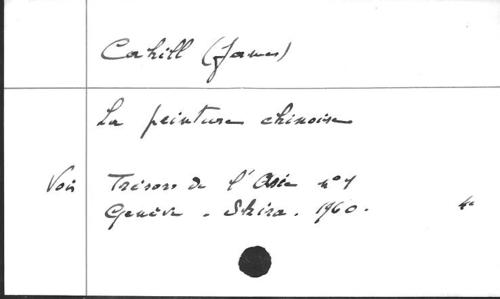 Cahill (James)
La peinture chinoise
Voir Trésors de l'Asie n° 1
Genève - Skira. 1960.